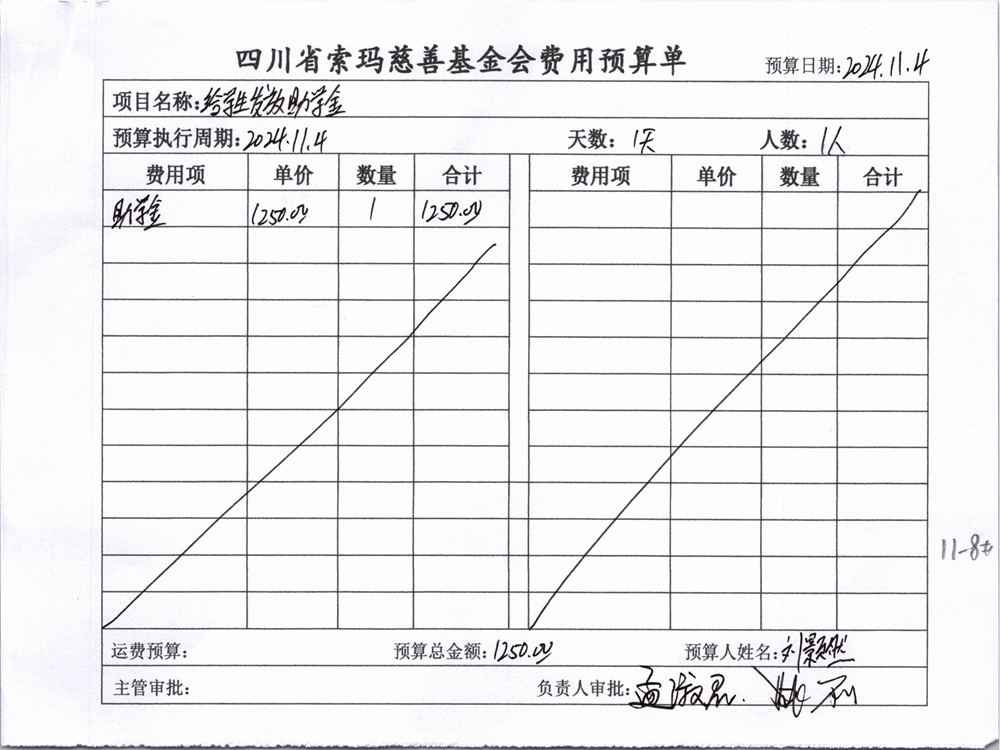 四川省索玛慈善基金会费用预算单
预算日期:2024.11.4
项目名称:给学生发放助学金
预算执行周期:2024.11.4 天数: 1天 人数: 1人
费用项 单价 数量 合计 费用项 单价 数量 合计
助学金 1250.00 1 1250.00
11-8#
运费预算: 预算总金额:1250.00 预算人姓名:刘颢然
主管审批: 负责人审批: